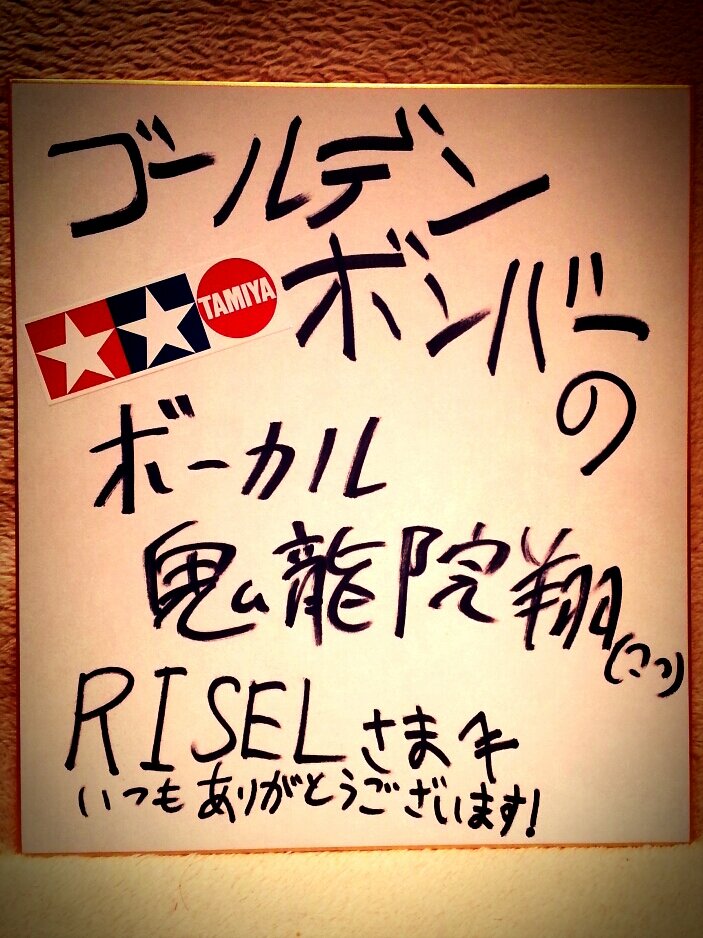 ゴールデン
TAMIYA
ボンバー
の
ボーカル
鬼龍院翔
RISELさま
いつもありがとうございます!